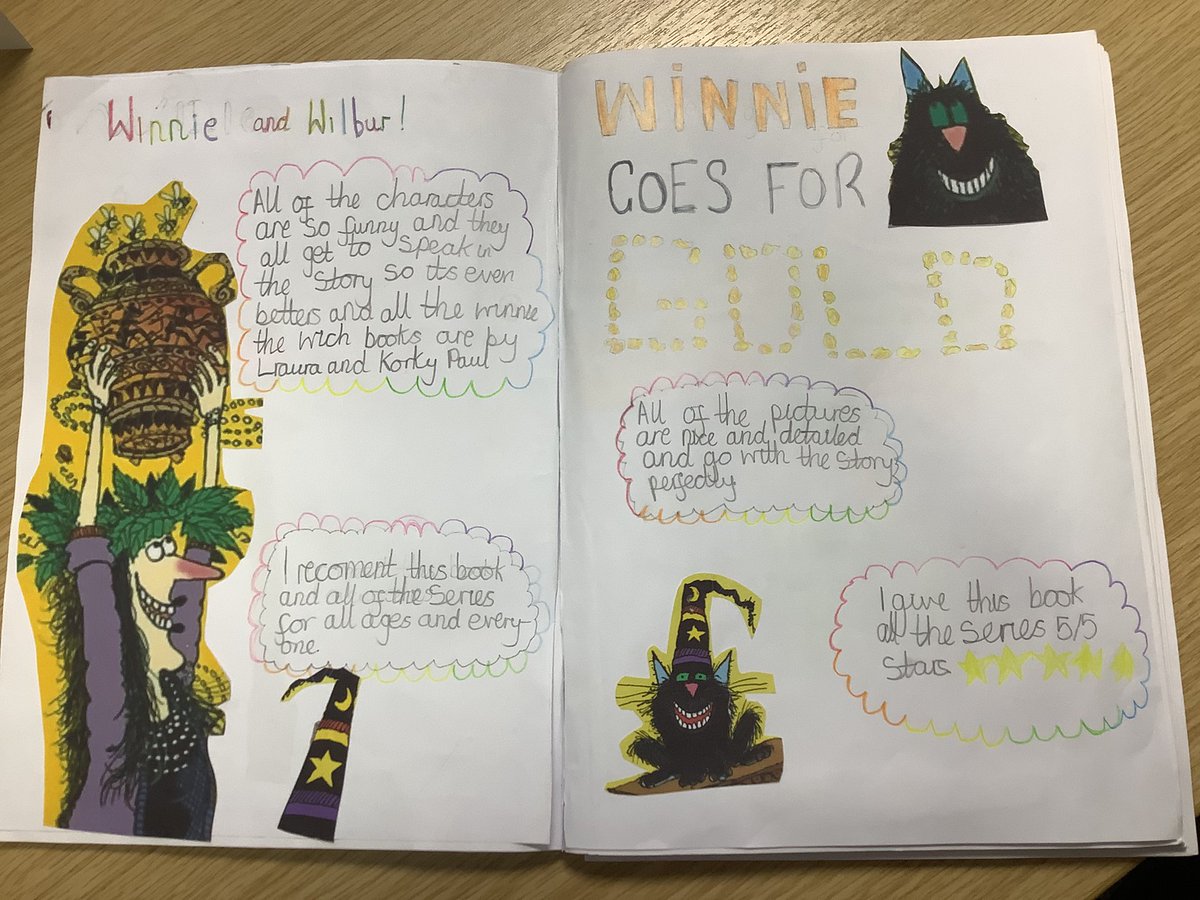 Winnie and Wilbur!
All of the characters
are so funny and they
all get to speak in
the story so its even
betters and all the winnie
the wich books are by
Lraura and Korky Paul
I recoment this book
and all of the series
for all ages and every-
one.
WiNNiE
GOES FOR
GOLD
All of the pictures
are nice and detailed
and go with the story
perfectly
I give this book
all the series 5/5
stars